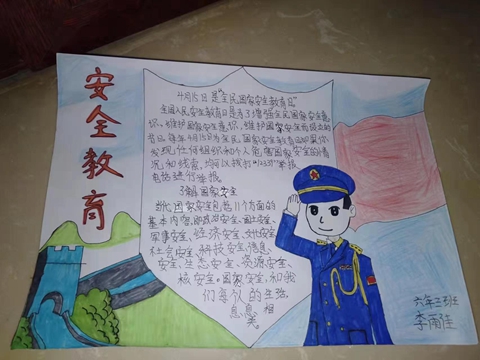 安全教育
4月15日是"全民国家安全教育日"
全国人民安全教育日是为了增强全民国家安全意
识,维护国家安全意识,维护国家安全而设立的
节日.每年4月15日为全民国家安全教育日如果你
发现任何组织和个人危害国家安全的情
况和线索,均可以拨打"12339"举报
电话进行举报。
了解国家安全
当代国家安全包括11个方面的
基本内容,即政治安全、国土安全、
军事安全、经济安全、文化安全、
社会安全、科技安全、信息
安全、生态安全、资源安全、
核安全。国家安全和我
们每个人的生活
息息相
关
六年三班
李雨佳